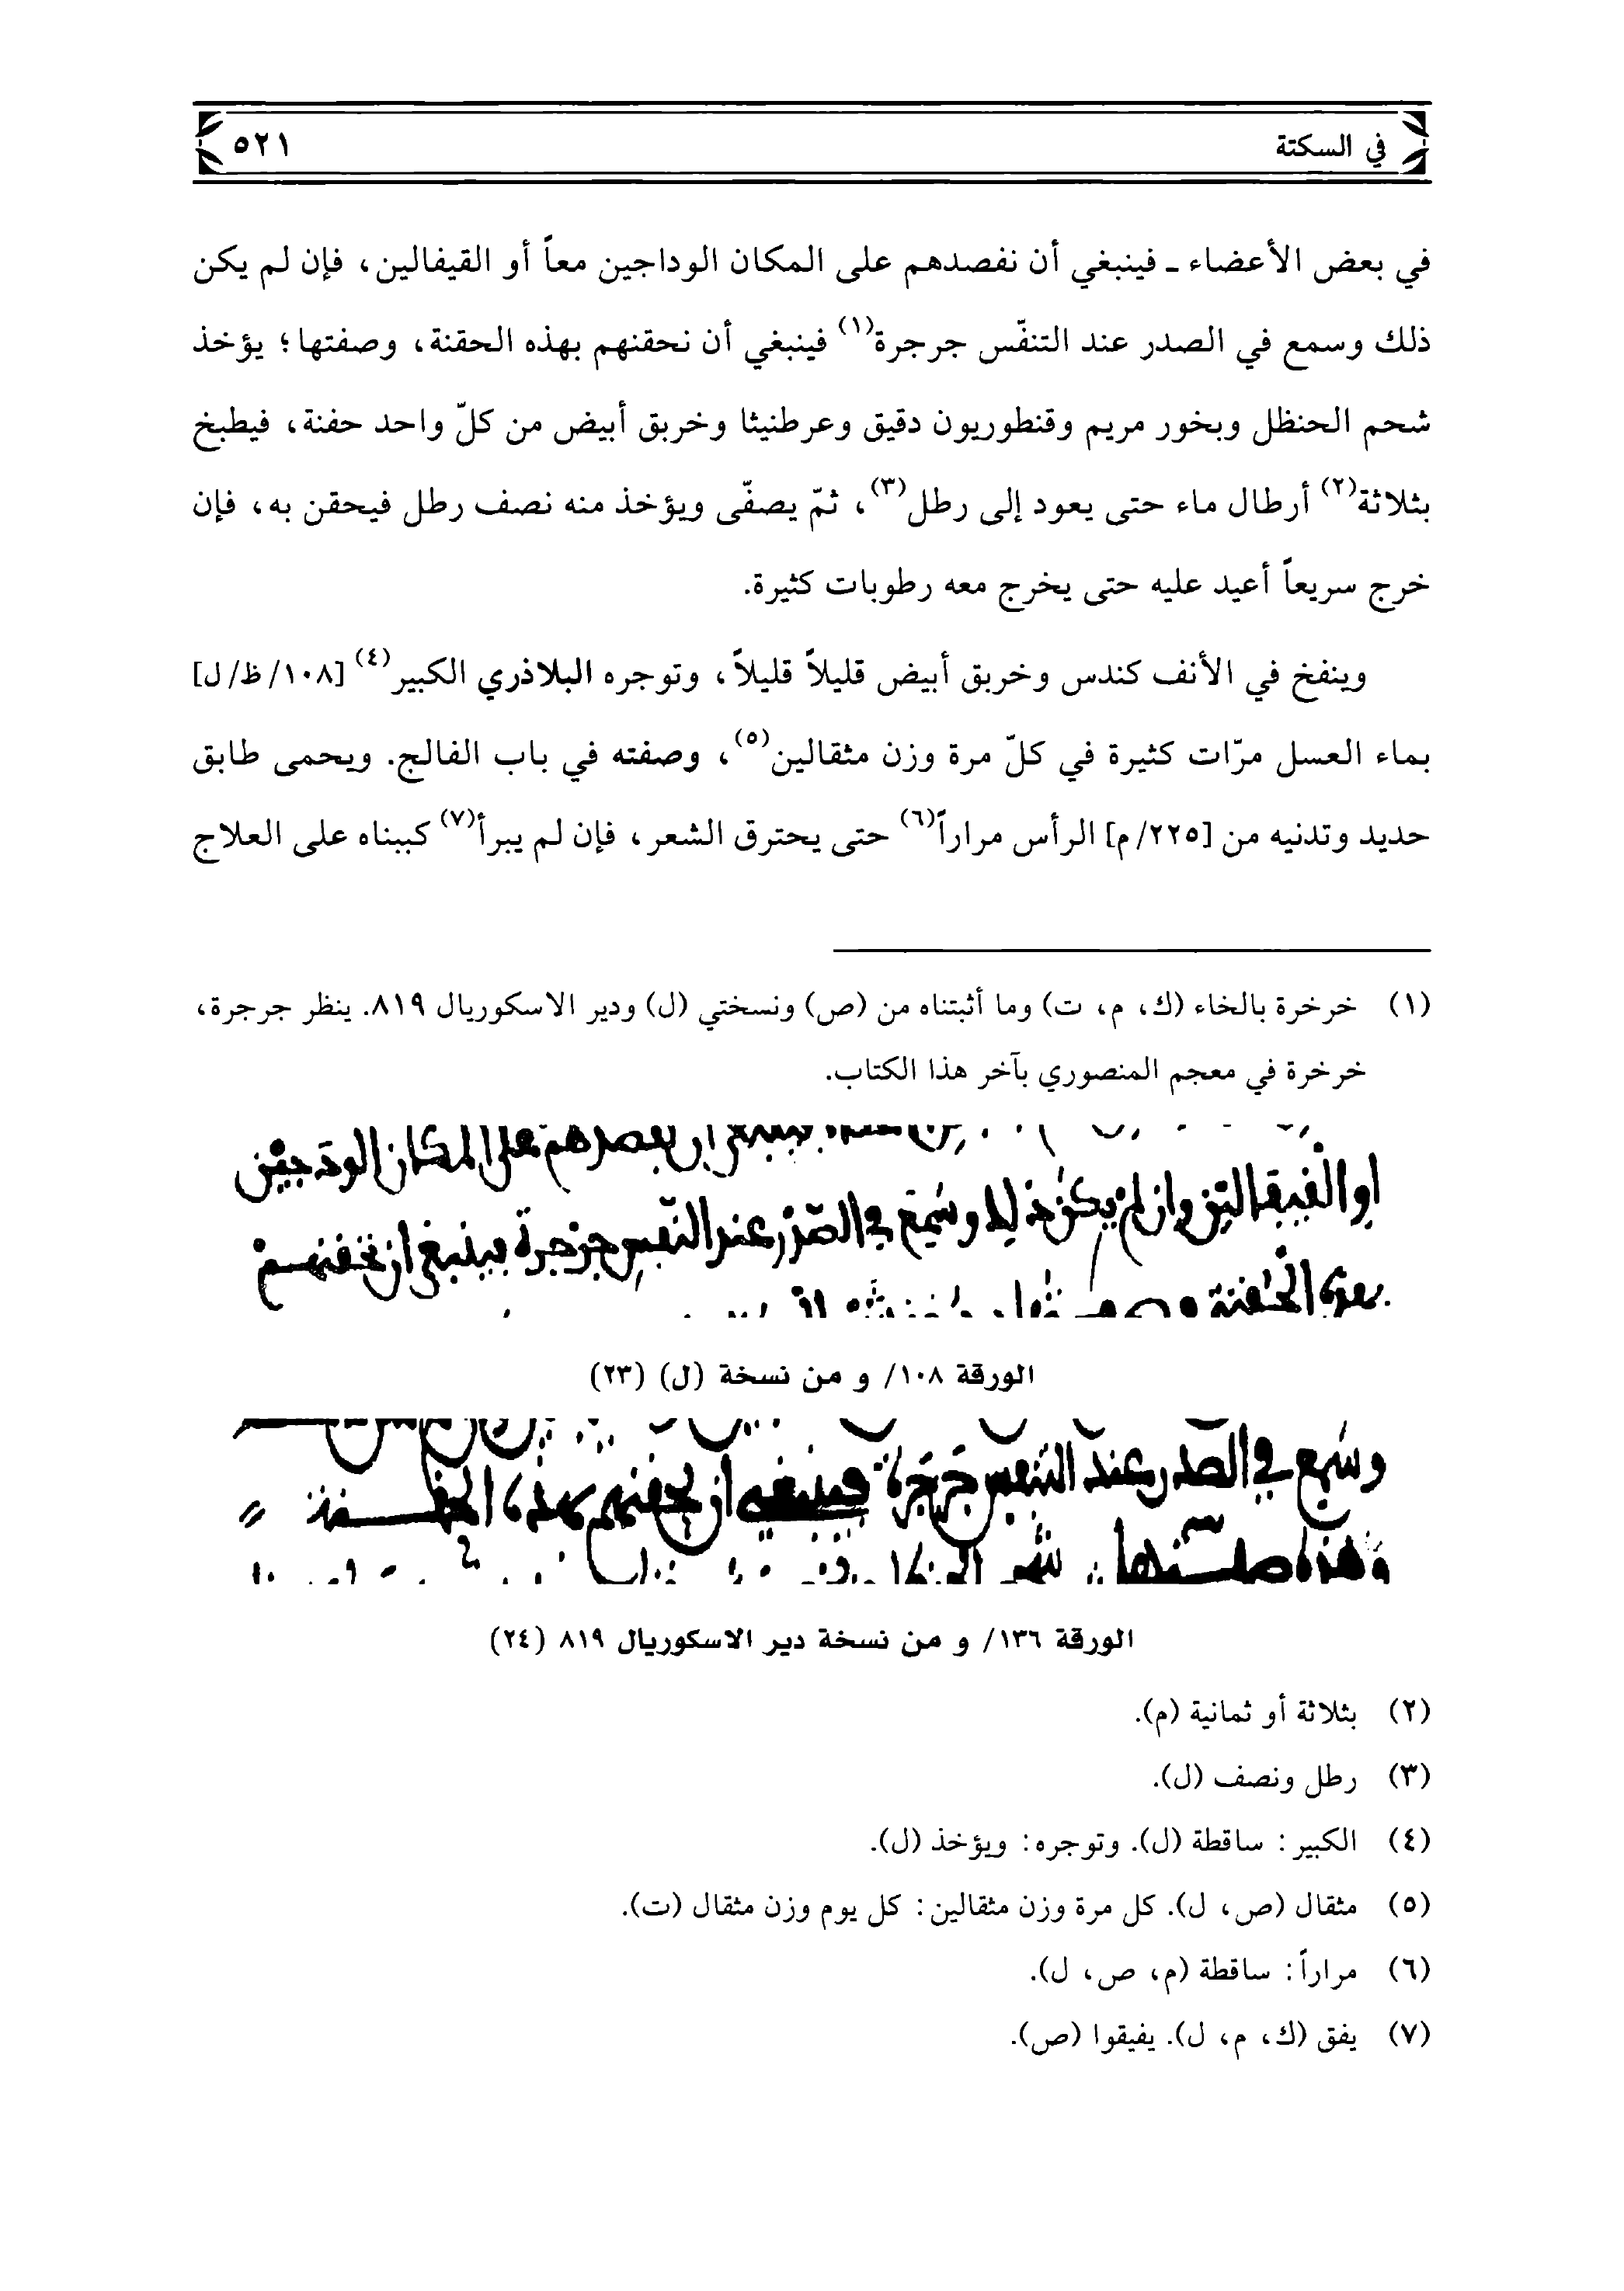 في السكتة ٥٢١
في بعض الأعضاء ـ فينبغي أن نفصدهم على المكان الوداجين معاً أو القيفالين، فإن لم يكن
ذلك وسمع في الصدر عند التنفّس جرجرة(١) فينبغي أن نحقنهم بهذه الحقنة، وصفتها؛ يؤخذ
شحم الحنظل وبخور مريم وقنطوريون دقيق وعرطنيثا وخربق أبيض من كلّ واحد حفنة، فيطبخ
بثلاثة(٢) أرطال ماء حتى يعود إلى رطل(٣)، ثمّ يصفّى ويؤخذ منه نصف رطل فيحقن به، فإن
خرج سريعاً أعيد عليه حتى يخرج معه رطوبات كثيرة.
وينفخ في الأنف كندس وخربق أبيض قليلاً قليلاً، وتوجره البلاذري الكبير(٤) [١٠٨/ظ/ل]
بماء العسل مرّات كثيرة في كلّ مرة وزن مثقالين(٥)، وصفته في باب الفالج. ويحمى طابق
حديد وتدنيه من [٢٢٥/م] الرأس مراراً(٦) حتى يحترق الشعر، فإن لم يبرأ(٧) كببناه على العلاج
(١) خرخرة بالخاء (ك، م، ت) وما أثبتناه من (ص) ونسختي (ل) ودير الاسكوريال ٨١٩. ينظر جرجرة،
خرخرة في معجم المنصوري بآخر هذا الكتاب.
ان نفصدهم على المكان الودجين
او القيفالين وان لم يكن ذلك وسمع في الصدر عند النفس جرجرة فينبغي ان نحقنهم
بهذه الحقنة
الورقة ١٠٨/ و من نسخة (ل) (٢٣)
وسمع في الصدر عند التنفس جرجرة فينبغي ان نحقنهم بهذه الحقنة
وهذه صفتها
الورقة ١٣٦/ و من نسخة دير الاسكوريال ٨١٩ (٢٤)
(٢) بثلاثة أو ثمانية (م).
(٣) رطل ونصف (ل).
(٤) الكبير: ساقطة (ل). وتوجره: ويؤخذ (ل).
(٥) مثقال (ص، ل). كل مرة وزن مثقالين: كل يوم وزن مثقال (ت).
(٦) مراراً: ساقطة (م، ص، ل).
(٧) يفق (ك، م، ل). يفيقوا (ص).